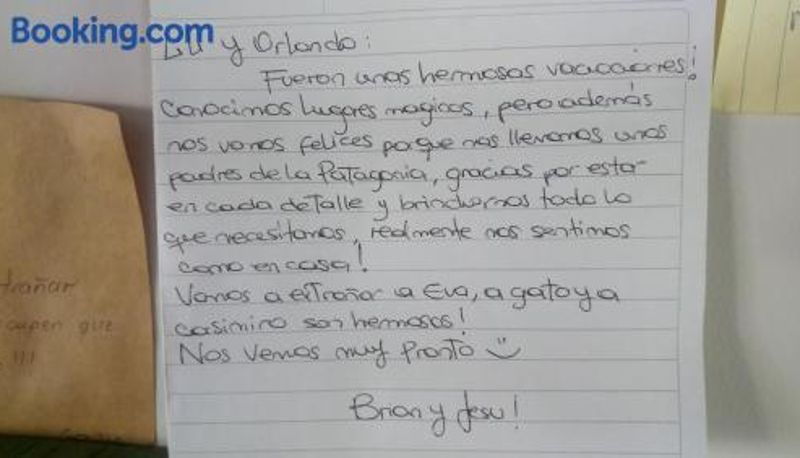 Booking.com
Lu y Orlando:
Fueron unas hermosas vacaciones!
Conocimos lugares magicos, pero además
nos vamos felices porque nos llevamos unos
padres de la Patagonia, gracias por estar
en cada detalle y brindarnos todo lo
que necesitamos, realmente nos sentimos
como en casa!
Vamos a extrañar a Eva, a gato y a
casimiro son hermosos!
Nos vemos muy pronto
Brian y Jesu!
trañar
que
!!!